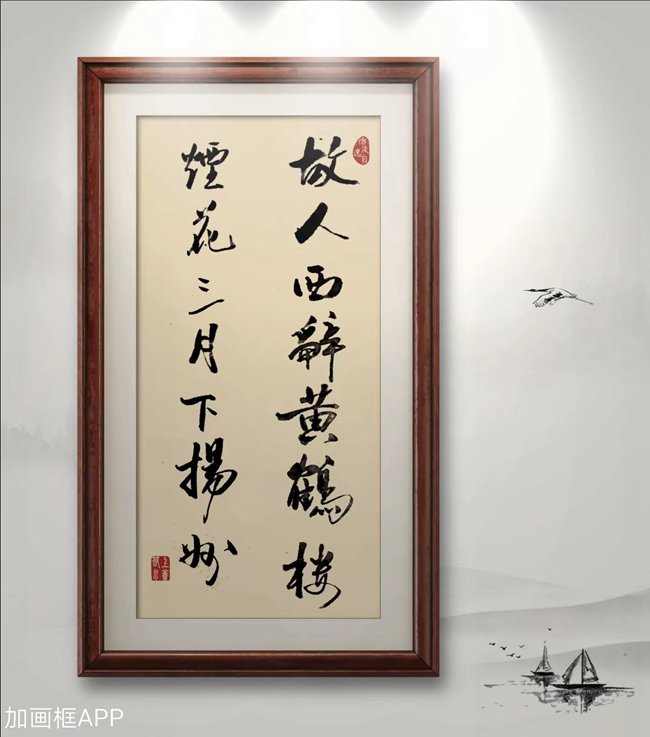 故人西辭黄鶴楼
煙花三月下揚州
加画框APP